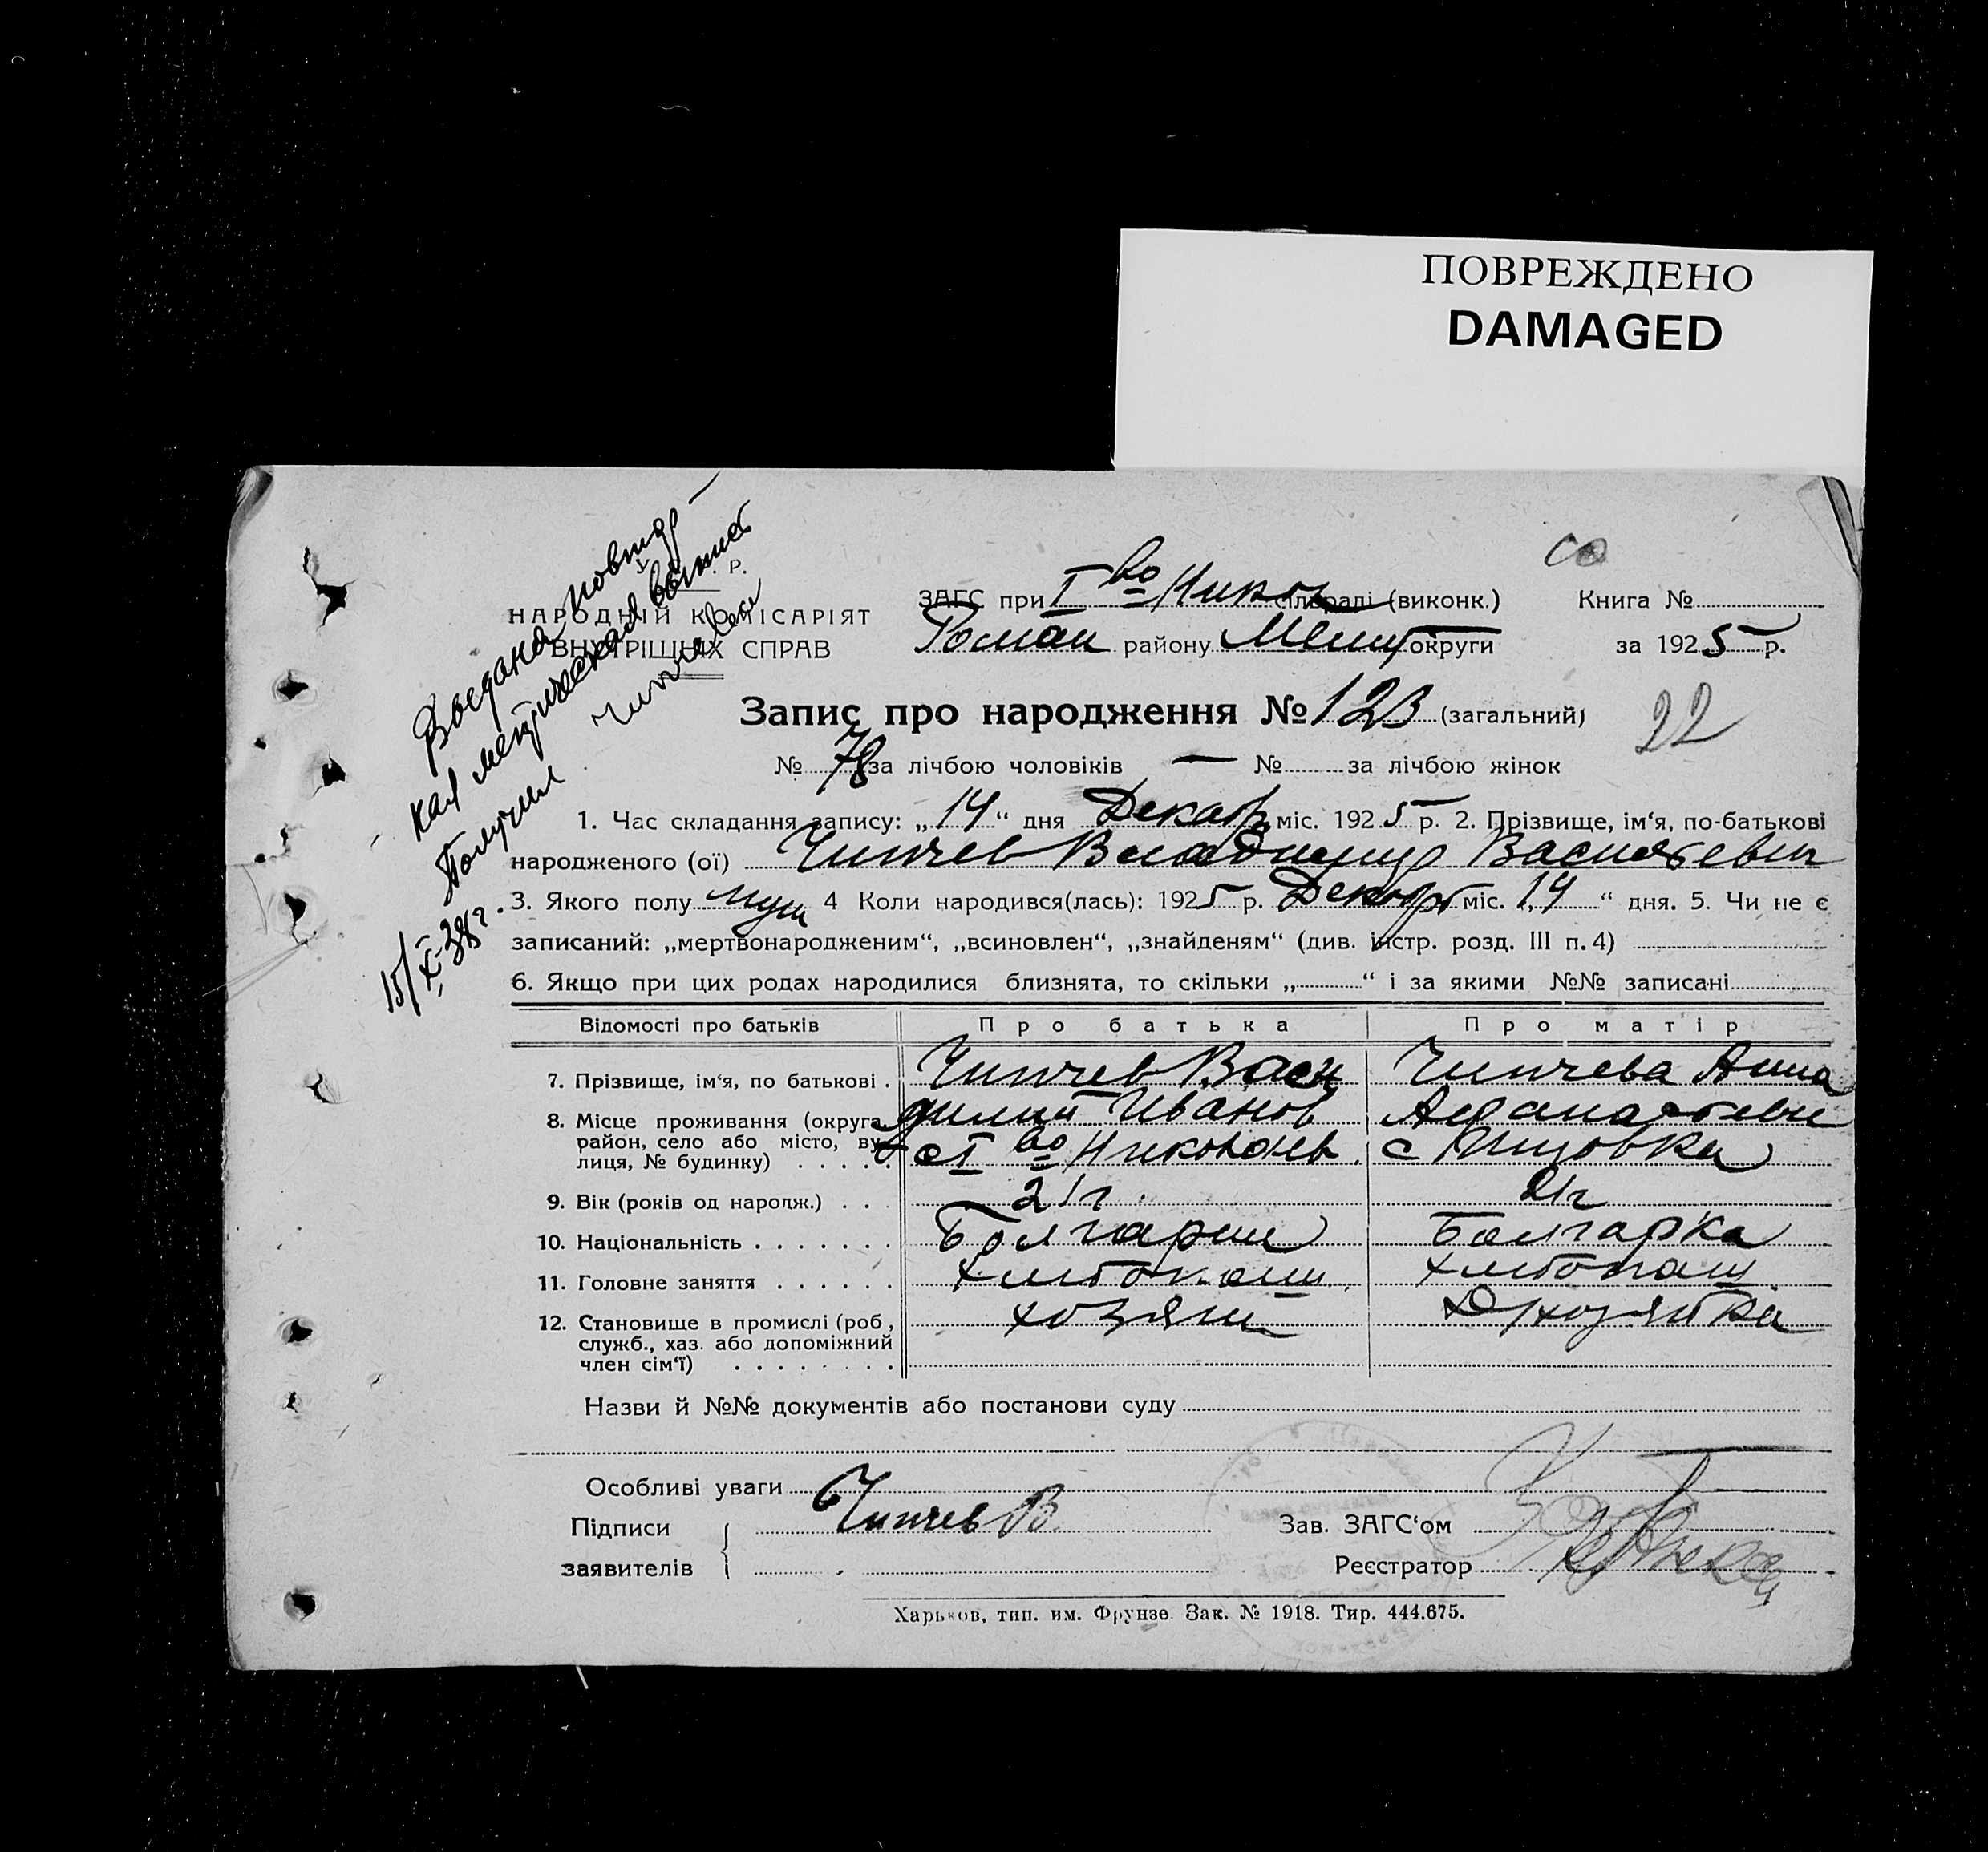 ПОВРЕЖДЕНО
DAMAGED
У. Р.
НАРОДНІЙ КОМІСАРІЯТ
ВНУТРІШНІХ СПРАВ
ЗАГС при I во Никол сільраді (виконк.) Книга №
Роман району Мелит округи за 1925 р.
Выдана повтор-
ная метрическая выпись
Получил Чипчев
15/X-38г.
Запис про народження № 123 (загальний)
22
№ 78 за лічбою чоловіків — № за лічбою жінок
1. Час складання запису: „14“ дня Декабр міс. 1925 р. 2. Прізвище, ім‘я, по-батькові
народженого (ої) Чипчев Владимир Васильевич
3. Якого полу муж 4 Коли народився(лась): 1925 р. Декабр міс. 14 “ дня. 5. Чи не є
записаний: „мертвонародженим“, „всиновлен“, „знайденям“ (див. інстр. розд. III п. 4)
6. Якщо при цих родах народилися близнята, то скільки „ “ і за якими №№ записані
Відомості про батьків Про батька Про матір
7. Прізвище, ім‘я, по батькові . Чипчев Васи Чипчева Анна
8. Місце проживання (округа, район, село або місто, вулиця, № будинку) . . . . . Иванов с I во Николаев Афанасьевн с
9. Вік (років од народж.) . . . 21г. 21г
10. Національність . . . . . . . Болгарин Болгарка
11. Головне заняття . . . . . . хлебопаш. хлебопаш.
12. Становище в промислі (роб, хозяин
служб., хаз. або допоміжний
член сім‘ї) . . . . . . . .
Назви й №№ документів або постанови суду
Особливі уваги
Підписи Чипчев В. Зав. ЗАГС‘ом
заявителів Реєстратор
Харьков, тип. им. Фрунзе. Зак. № 1918. Тир. 444.675.